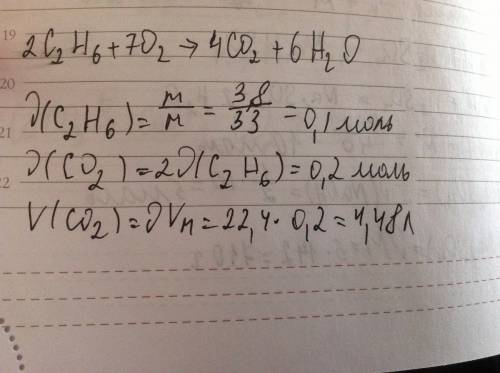 19
2C₂H₆+7O₂→4CO₂+6H₂O
20
ϑ(C₂H₆)=m/M=3,8/33=0,1 моль
21
ϑ(CO₂)=2ϑ(C₂H₆)=0,2 моль
22
V(CO₂)=ϑVm=22,4·0,2=4,48л